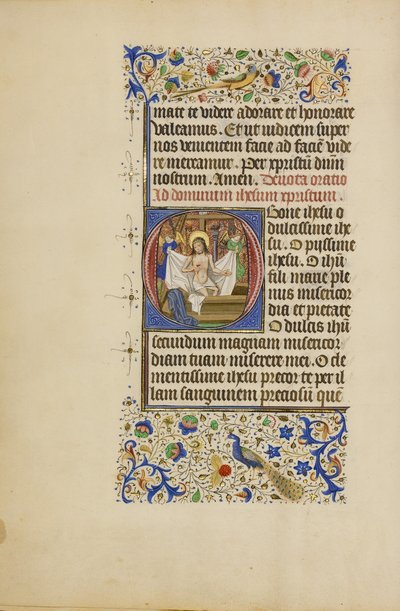 mate te videre adorare et honorare
valeamus. Et ut iudicem super
nos venientem facie ad faciē vide
re mereamur. Per xp̄ristum dūm
nostrum. Amen. Devota oratio
Ad dominum ihesum xpristum.
O Bone ihesu o
dulcissime ihe
su. O pijssime
ihesu. O ihū
fili marie ple
nus misericor
dia et pietate
O dulcis ihū
secundum magnam misericor
diam tuam miserere mei. O cle
mentissime ihesu precor te per il
lam sanguinem preciosū quē